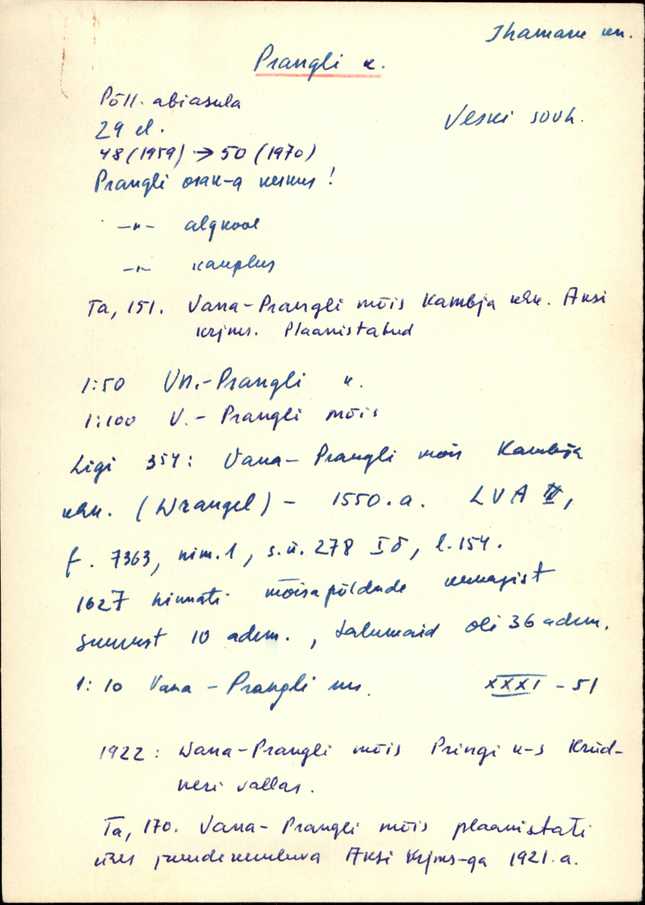 Ihamaru kn.
Prangli k.
Põll. abiasula
29 el.
Veski sovh.
48 (1959) → 50 (1970)
Prangli osak-a keskus!
-"- algkool
-"- kauplus
Ta, 151. Vana-Prangli mõis Kambja khk. Aksi
krjms. Plaanistatud
1:50 Vn.-Prangli k.
1:100 V.- Prangli mõis
Ligi 354: Vana- Prangli mõis Kambja
khk. (Wrangel) - 1550. a. LVA II,
f. 7363, nim. 1, s.ü. 278 I δ, l. 154.
1627 hinnati mõisapõldude kunagist
suurust 10 adm., talumaid oli 36 adm.
1: 10 Vana - Prangli ms. XXXI - 51
1922: Wana-Prangli mõis Pringi k-s Krüd-
neri vallas.
Ta, 170. Vana- Prangli mõis plaanistati
ühes juurdekuuluva Aksi krjms-ga 1921. a.